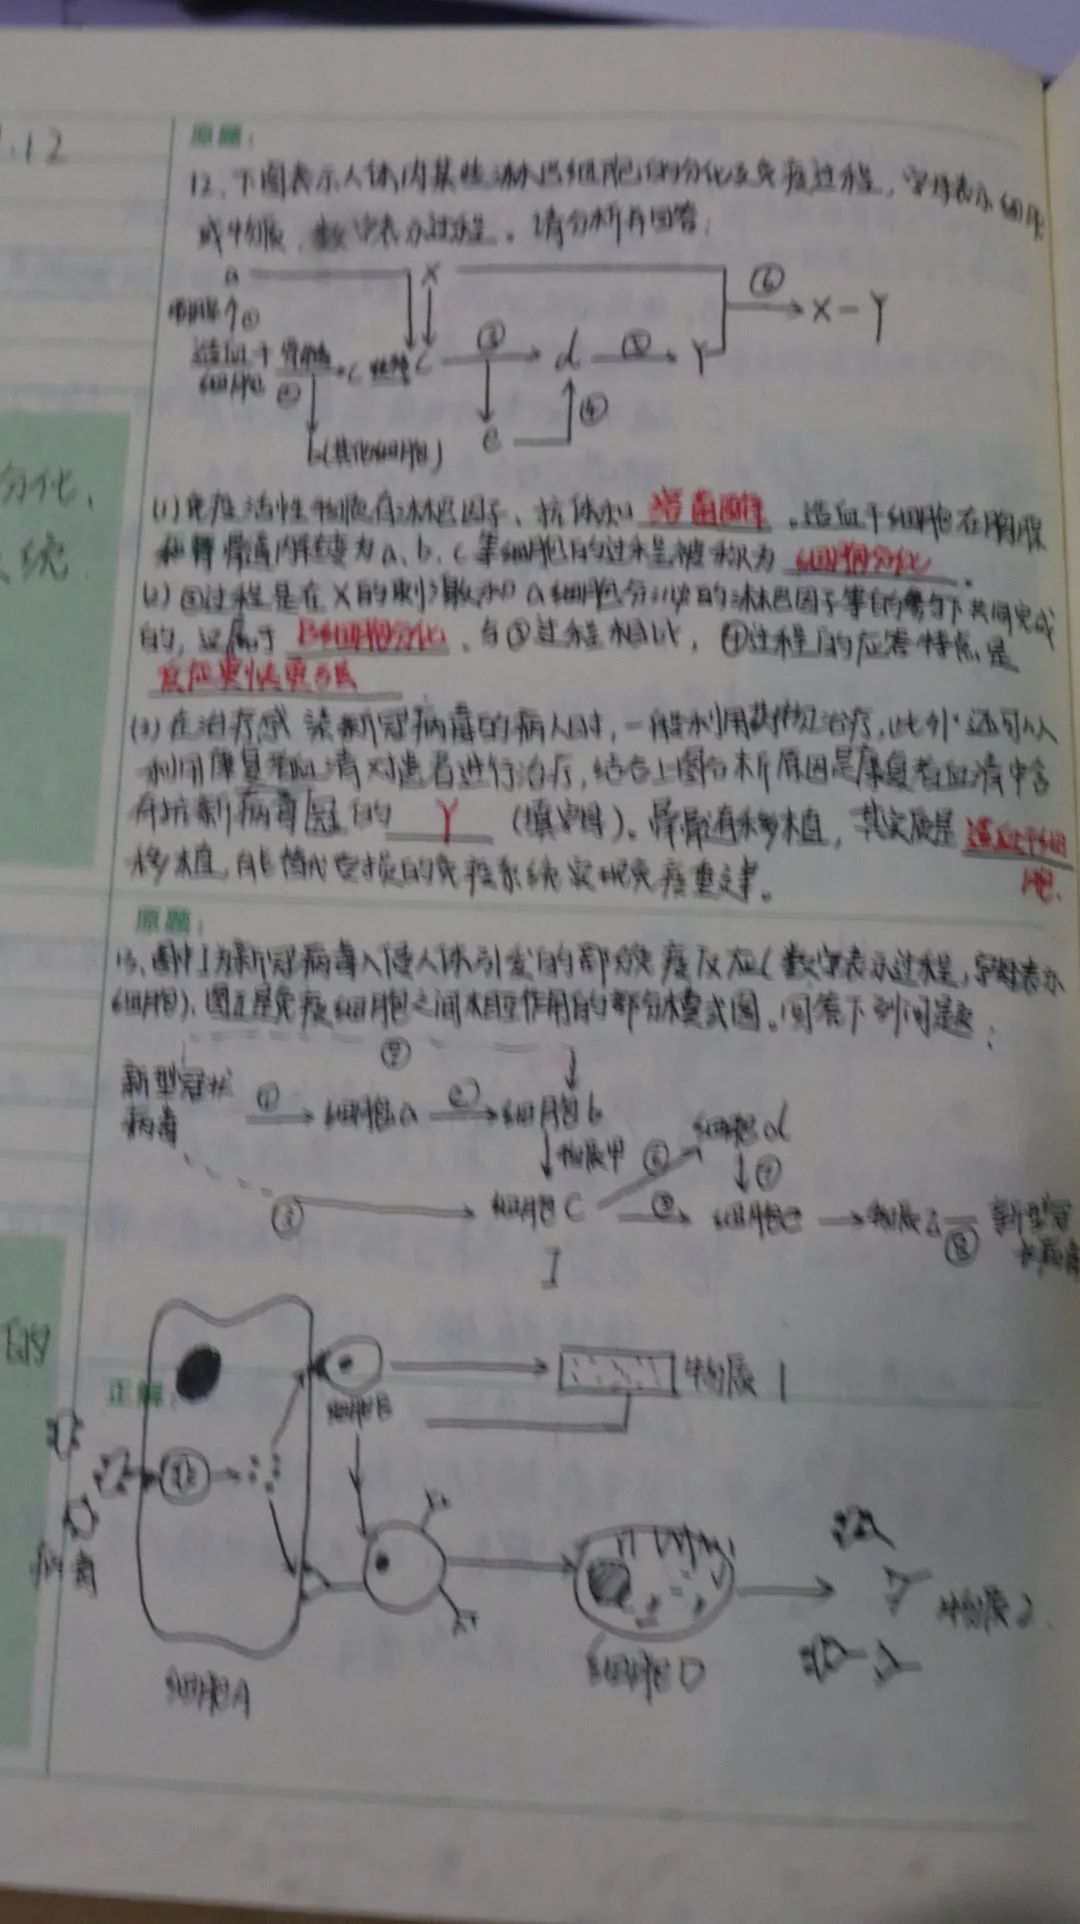 .12
原题:
12、下图表示人体内某些淋巴细胞的分化及免疫过程,字母表示细胞
或物质,数字表示过程。请分析并回答:
a X ⑥ X-Y
胸腺 ①
造血干细胞 骨髓 ② C C ③ d ⑤ Y
e ④
b(其他细胞)
分化、
统
(1)免疫活性物质有淋巴因子、抗体和 溶菌酶 。造血干细胞在胸腺
和骨髓内转变为a、b、c等细胞的过程被称为 细胞分化 。
(2)③过程是在X的刺激和a细胞分泌的淋巴因子等的参与下共同完成
的,这属于 B细胞分化 、与③过程相比,④过程的应答特点是
反应更快更强
(3)在治疗感染新冠病毒的病人时,一般利用药物治疗,此外还可以
利用康复者血清对患者进行治疗,结合上图分析原因是康复者血清中含
有抗新冠病毒的 Y (填字母)。骨髓移植,其实质是 造血干细胞
移植,能替代受损的免疫系统实现免疫重建。
原题:
13、图中I为新冠病毒入侵人体引发的部分免疫反应(数字表示过程,字母表示
细胞),图II是免疫细胞之间相互作用的部分模式图。回答下列问题:
新型冠状病毒 ① 细胞a ② 细胞b 细胞d
物质甲 ⑥ ⑦
③ 细胞C 细胞e 物质乙 ⑧ 新型冠
I
的
正解:
物质1
细胞B
病毒
物质2
细胞A 细胞D